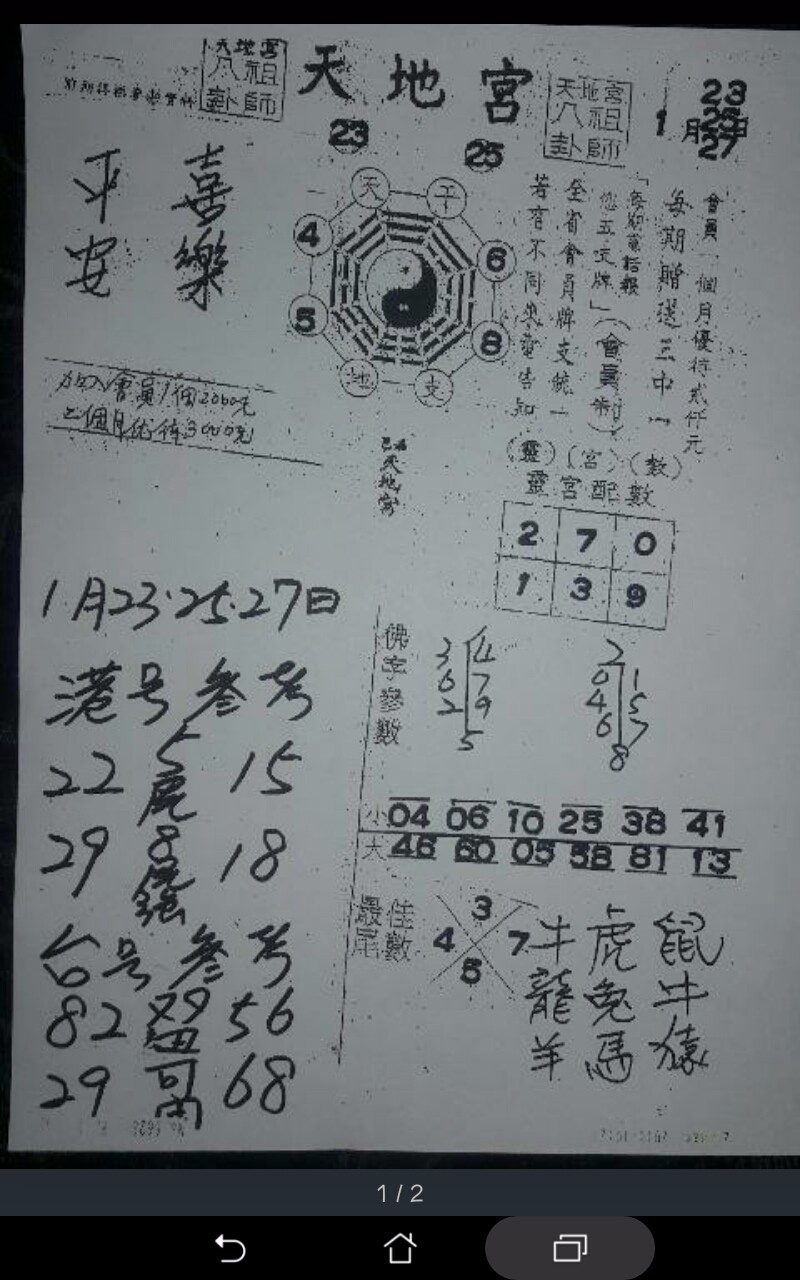 天地宮
天地宮
八祖
卦師
天地宮
八祖
卦師
23
25
1月
23
25
27
平安
喜樂
天
干
4
6
5
8
地
支
會員一個月優待貳仟元
每期贈送三中一
「每期電話報
您五支牌」(會員制)
全省會員牌支統一
若有不同來電告知
加入會員1個2000元
二個月优待3000元
天地宮
(靈)(宮)(数)
靈宮配數
2 7 0
1 3 9
1月23.25.27日
港号參考
22 5虎 15
29 8 18
台号參考
82 56
29 68
佛字參數
3 4
6 7
2 9
5
2
0 1
4 5
6 7
8
小 04 06 10 25 38 41
大 46 60 05 58 81 13
最佳
尾數
3
4 7
5
牛 虎 鼠
龍 兔 牛
羊 馬 猿
1/2